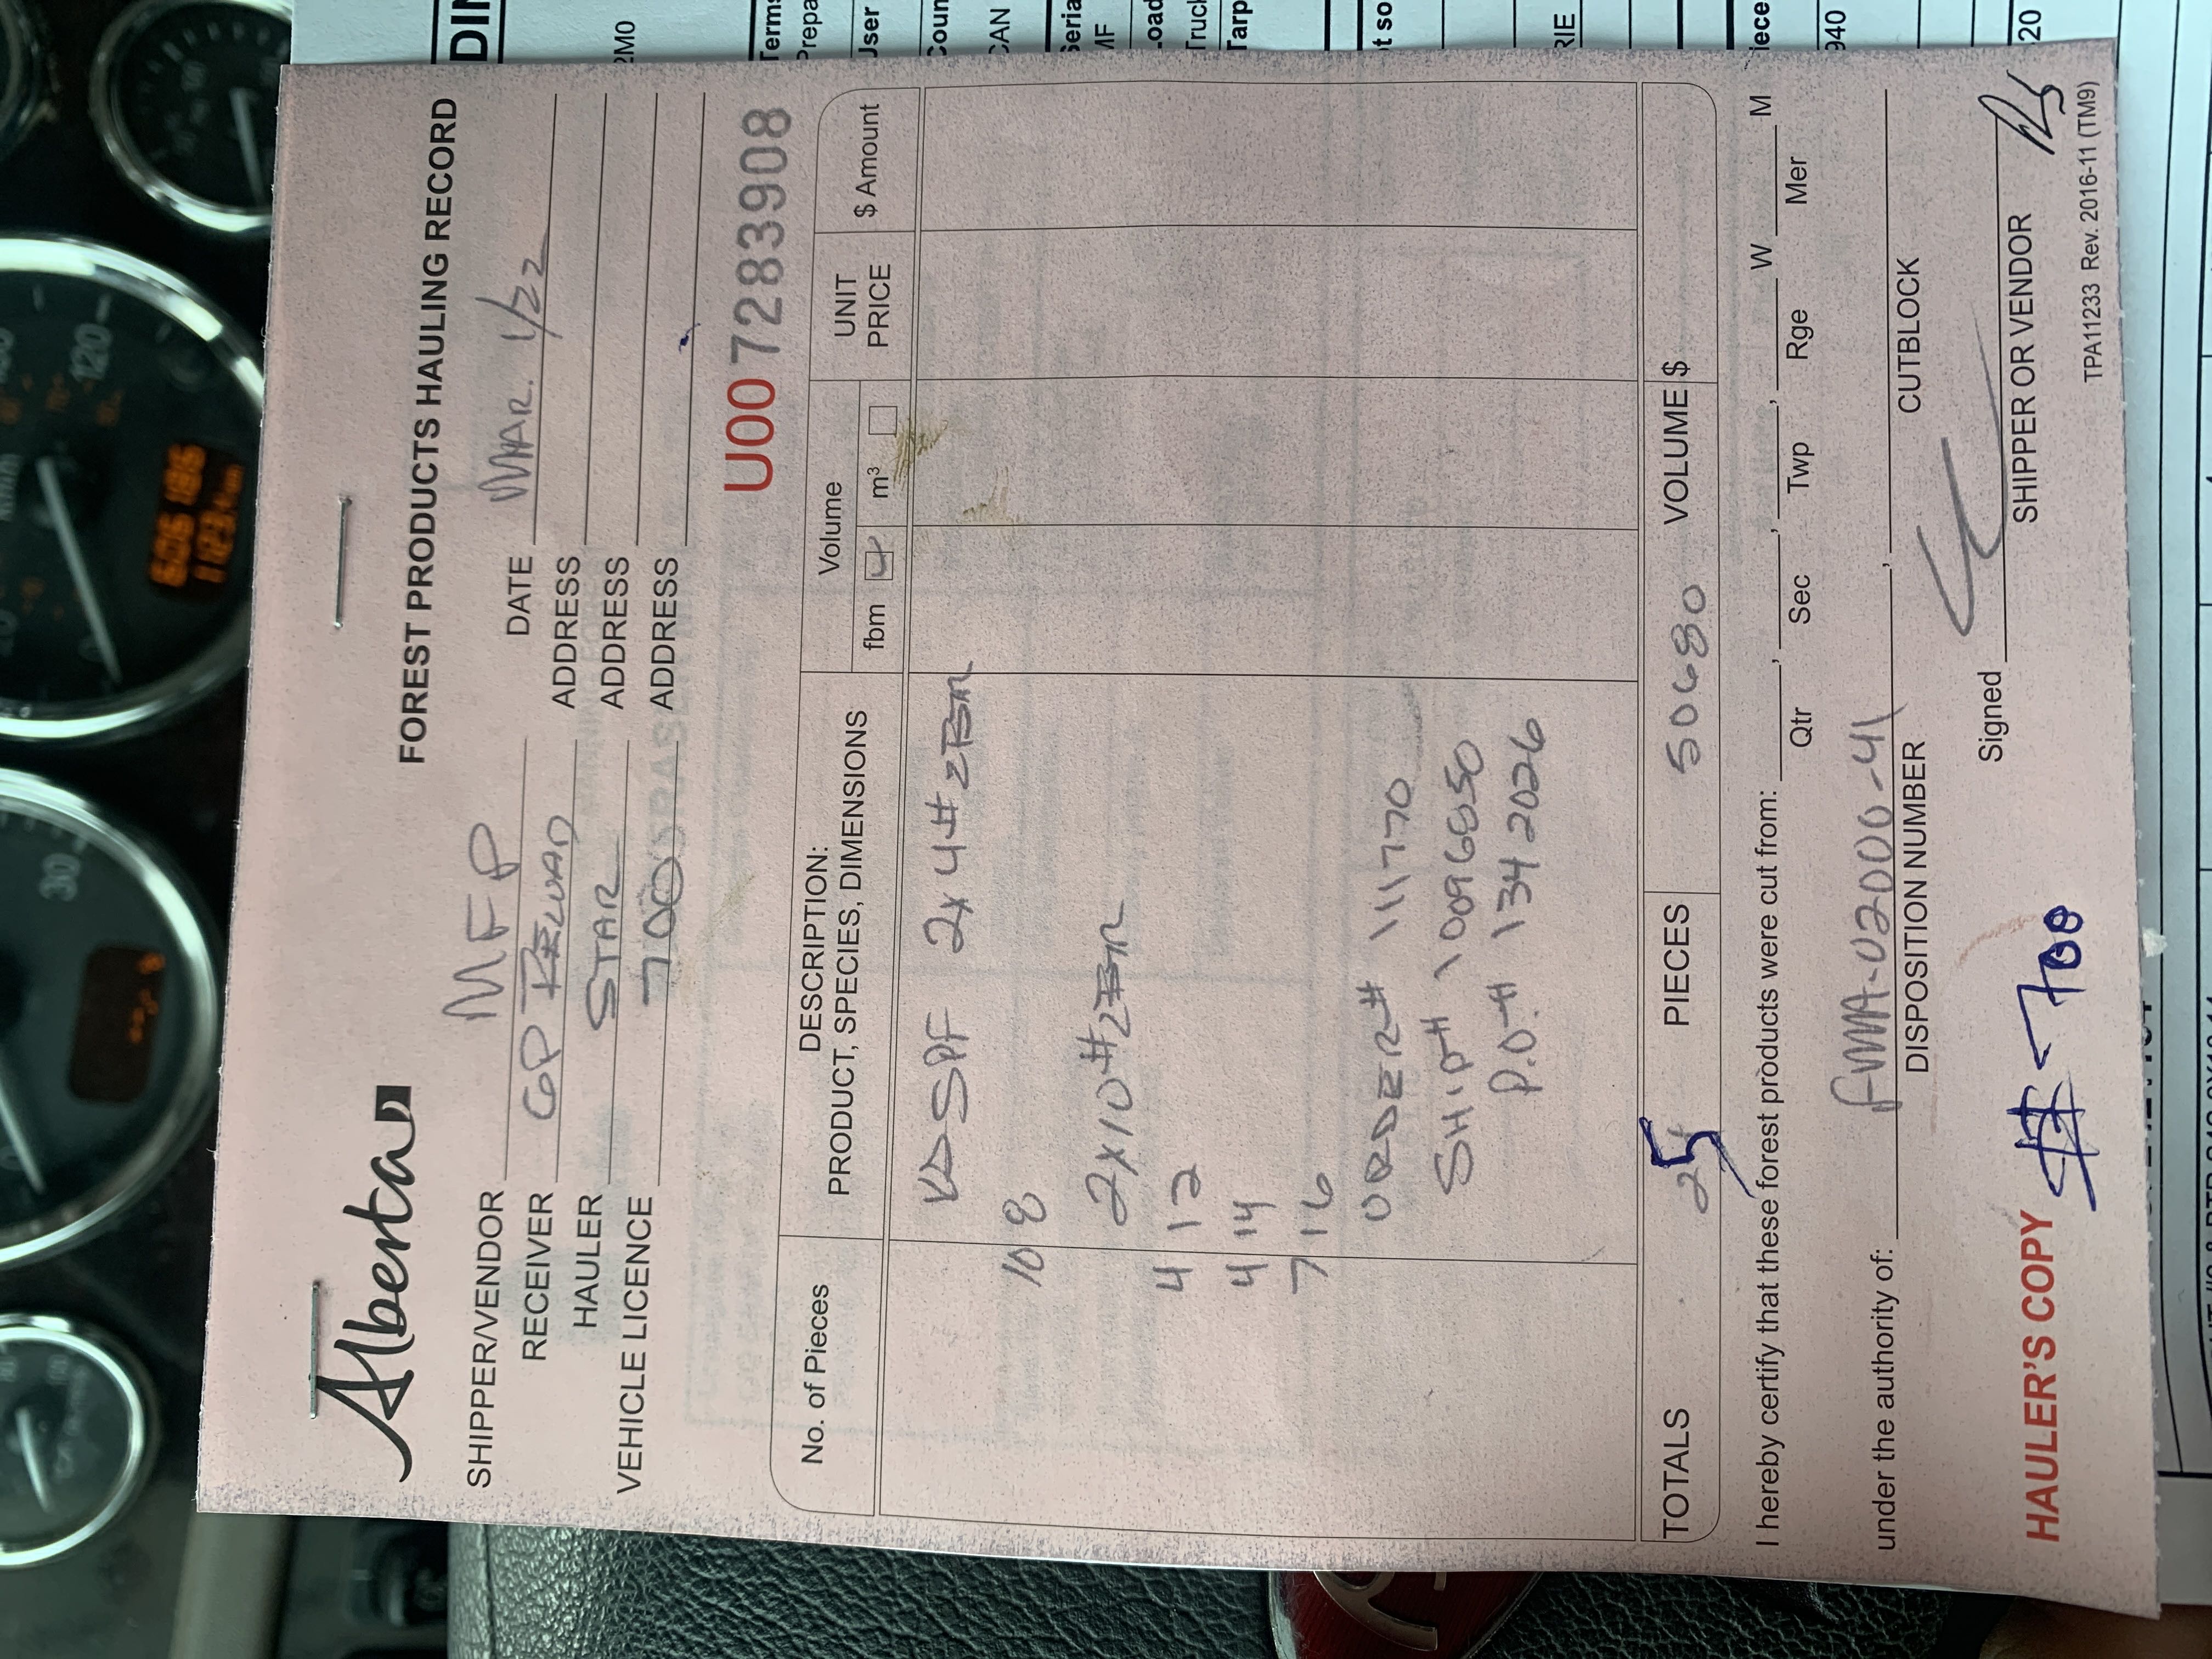 30
120
606186
1123.4 km
Alberta
FOREST PRODUCTS HAULING RECORD
SHIPPER/VENDOR MFP
DATE MAR. 1/22
RECEIVER GP RELOAD
ADDRESS
HAULER STAR
ADDRESS
VEHICLE LICENCE 700
ADDRESS
U007283908
No. of Pieces
DESCRIPTION:
PRODUCT, SPECIES, DIMENSIONS
Volume
fbm
m³
UNIT
PRICE
$ Amount
KD SPF 2x4 #2BTR
10 8
2x10 #2BTR
4 12
4 14
7 16
ORDER# 111770
SHIP# 10096850
P.O.# 1342026
TOTALS 25 PIECES 50680 VOLUME $
I hereby certify that these forest products were cut from: , , , W M
Qtr Sec Twp Rge Mer
under the authority of: FMA-02000-41 ,
DISPOSITION NUMBER CUTBLOCK
Signed
SHIPPER OR VENDOR
HAULER'S COPY # 700
TPA11233 Rev. 2016-11 (TM9)
2M0
Terms
Prepa
User
Coun
CAN
Seria
MF
Load
Truck
Tarp
t so
RIE
iece
940
20